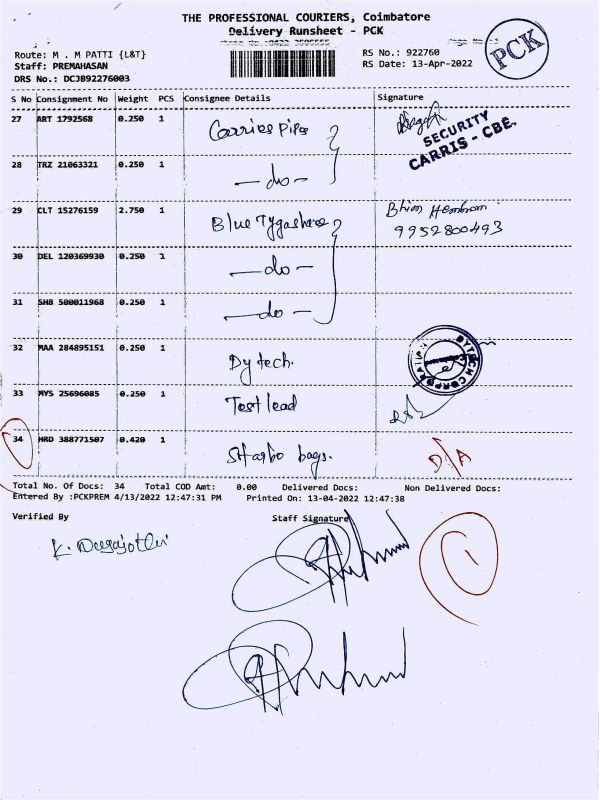 THE PROFESSIONAL COURIERS, Coimbatore
Delivery Runsheet - PCK
PCK
Route: M . M PATTI {L&T}
RS No.: 922760
Staff: PREMAHASAN
RS Date: 13-Apr-2022
DRS No.: DCJB92276003
S No Consignment No Weight PCS Consignee Details Signature
27 ART 1792568 0.250 1 Carries Pipes
SECURITY
CARRIS - CBE.
28 TRZ 21063321 0.250 1 —do—
29 CLT 15276159 2.750 1 Blue
9952800493
30 DEL 120369930 0.250 1 —do—
31 SHB 500011968 0.250 1 —do—
32 MAA 284895151 0.250 1 Dytech.
DYTECH CORPORATION
33 MYS 25696085 0.250 1 Test lead
34 HRD 388771507 0.420 1 bags.
D/A
Total No. Of Docs: 34 Total COD Amt: 0.00 Delivered Docs: Non Delivered Docs:
Entered By :PCKPREM 4/13/2022 12:47:31 PM Printed On: 13-04-2022 12:47:38
Verified By Staff Signature
1